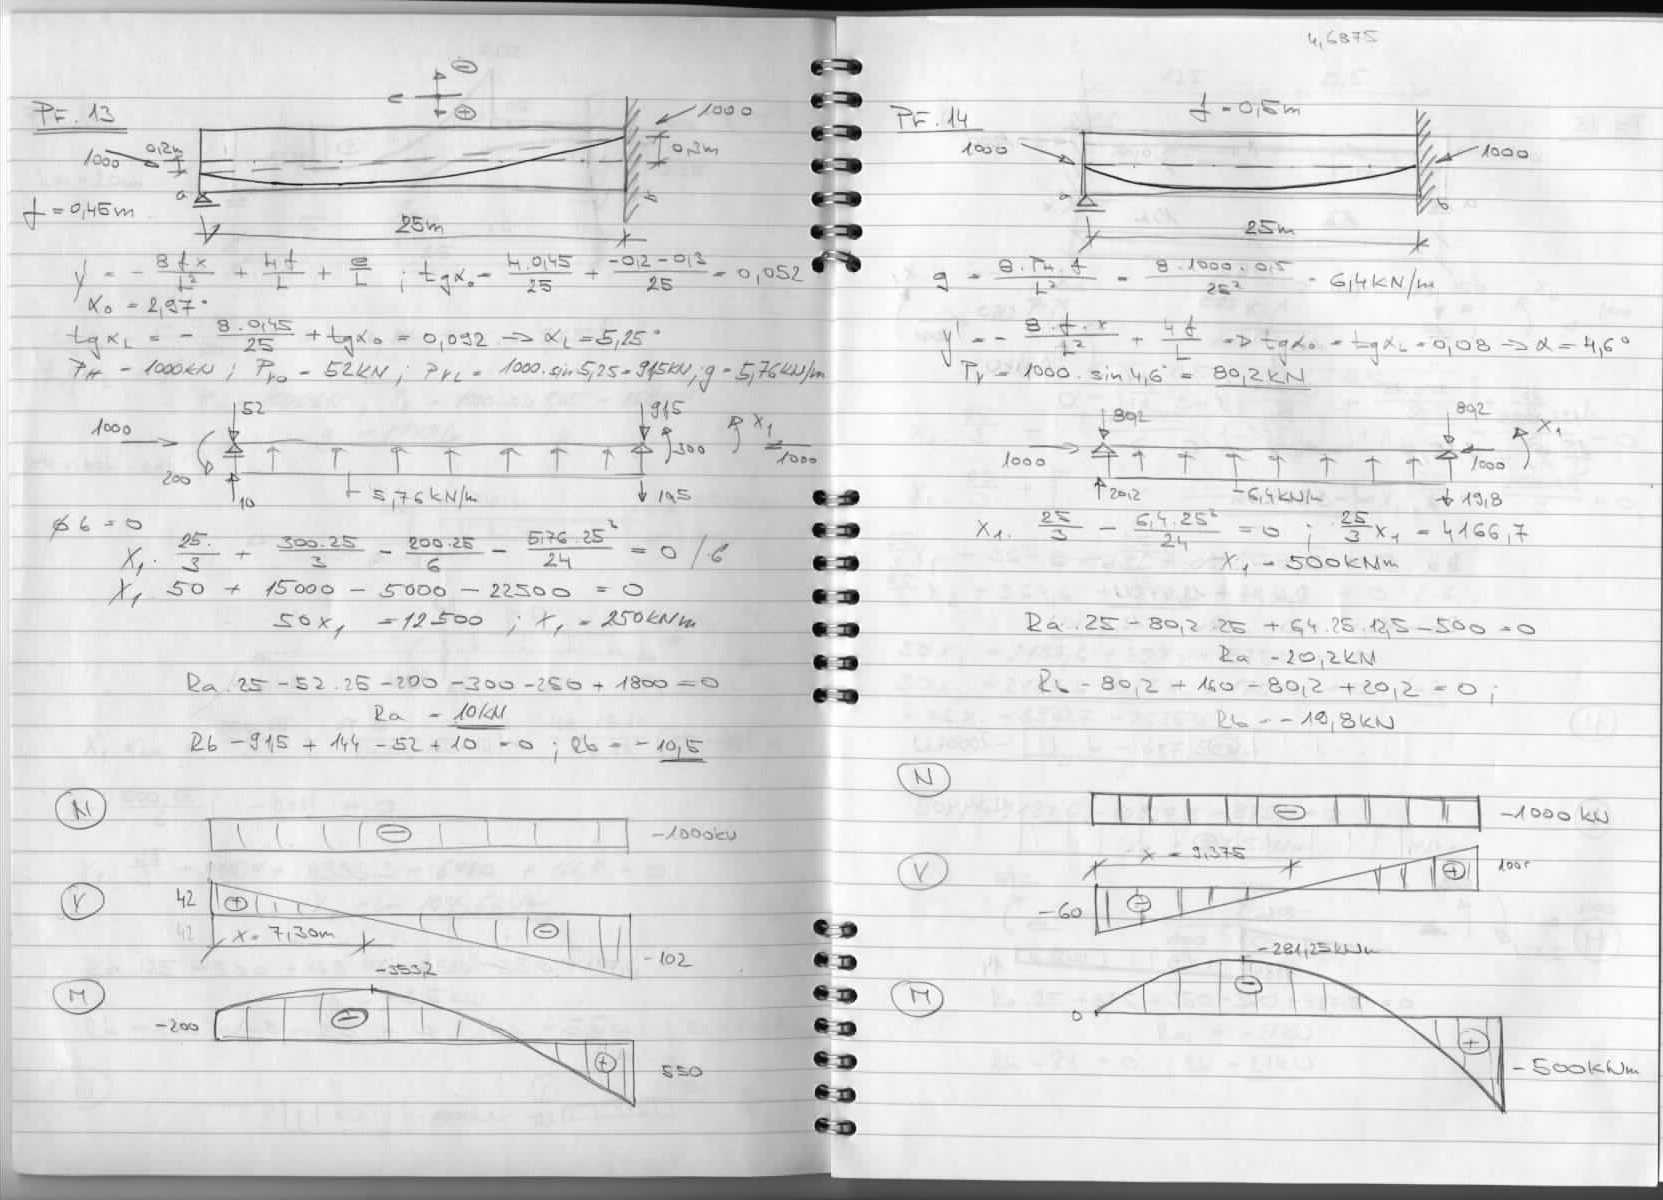 Př. 13
⊖
e
⊕
1000
0,2m
1000
0,3m
a
b
f = 0,45m
25m
y' = - 8fx/L² + 4f/L + e/L ; tgα₀ = 4.0,45/25 + -0,2-0,3/25 = 0,052
α₀ = 2,97°
tgαL = - 8.0,45/25 + tgα₀ = 0,092 => αL = 5,25°
PH = 1000kN ; PV0 = 52kN ; PVL = 1000.sin5,25 = 91,5kN ; g = 5,76kN/m
52
91,5
X₁
1000
300
1000
200
10
5,76kN/m
10,5
φb = 0
X₁. 25/3 + 300.25/3 - 200.25/6 - 5,76.25²/24 = 0 /.6
X₁ 50 + 15000 - 5000 - 22500 = 0
50x₁ = 12500 ; X₁ = 250kNm
Ra.25 - 52.25 - 200 - 300 - 250 + 1800 = 0
Ra = 10kN
Rb - 91,5 + 144 - 52 + 10 = 0 ; Rb = - 10,5
N
⊖
-1000kN
V
42
⊕
42
x = 7,30m
⊖
-102
M
-353,2
-200
⊖
⊕
550
4,6875
Př. 14
f = 0,5m
1000
1000
a
b
25m
g = 8.PH.f/L² = 8.1000.0,5/25² = 6,4kN/m
y' = - 8.f.x/L² + 4f/L => tgα₀ = tgαL = 0,08 => α = 4,6°
PV = 1000.sin4,6° = 80,2kN
80,2
80,2
X₁
1000
1000
20,2
6,4kN/m
19,8
X₁. 25/3 - 6,4.25²/24 = 0 ; 25/3 x₁ = 4166,7
X₁ = 500kNm
Ra.25 - 80,2.25 + 6,4.25.12,5 - 500 = 0
Ra = 20,2kN
Rb - 80,2 + 160 - 80,2 + 20,2 = 0 ;
Rb = - 19,8kN
N
⊖
-1000kN
V
x = 9,375
⊕
100
-60
⊖
M
-281,25kNm
⊖
0
⊕
-500kNm